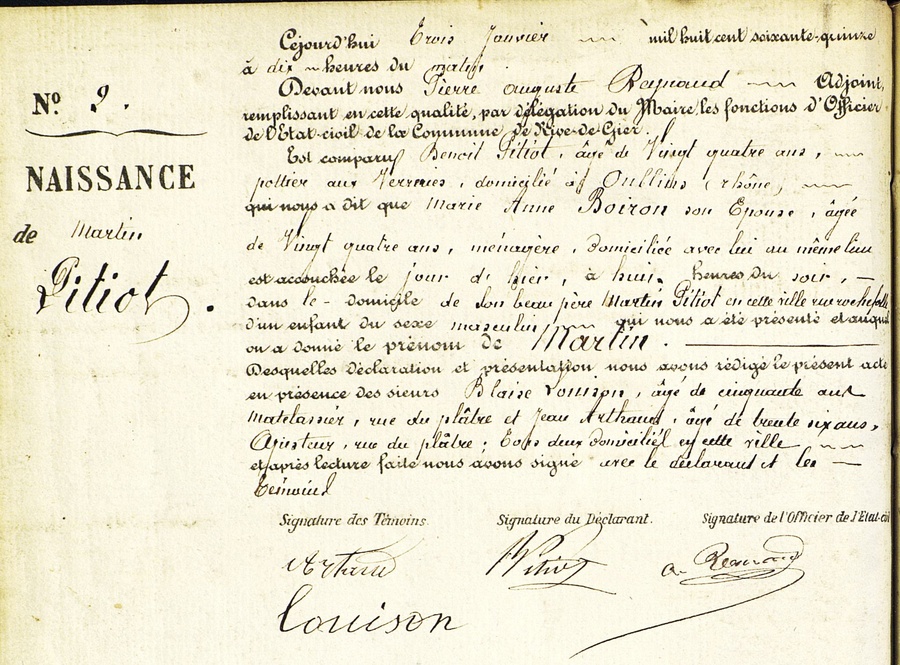 Nº 2.
NAISSANCE
de Martin
Pitiot.
Cejourd'hui Trois Janvier mil huit cent soixante-quinze
à dix heures du matin
Devant nous Pierre auguste Raynaud Adjoint,
remplissant en cette qualité, par délégation du Maire, les fonctions d'Officier
de l'Etat-civil de la Commune de Rive-de-Gier.
Est comparu Benoit Pitiot, âgé de Vingt quatre ans,
pottier aux Verreries, domicilié à Oullins (rhône)
qui nous a dit que Marie Anne Boiron son Epouse, âgée
de Vingt quatre ans, ménagère, domiciliée avec lui au même lieu
est accouchée le jour d'hier, à huit heures du soir,
dans le domicile de son beau père Martin Pitiot en cette ville rue
d'un enfant du sexe masculin, qui nous a été présenté et auquel
on a donné le prénom de Martin.
Desquelles déclaration et présentation nous avons rédigé le présent acte
en présence des sieurs Blaise Louison, âgé de cinquante ans
Matelassier, rue du plâtre et Jean Arthaud, âgé de trente six ans,
Ajusteur, rue du plâtre; Tous deux domiciliés en cette ville
et après lecture faite nous avons signé avec le déclarant et les
témoins
Signature des Témoins. Signature du Déclarant. Signature de l'Officier de l'Etat-ci
Artaud Pitiot a. Raynaud
Louison